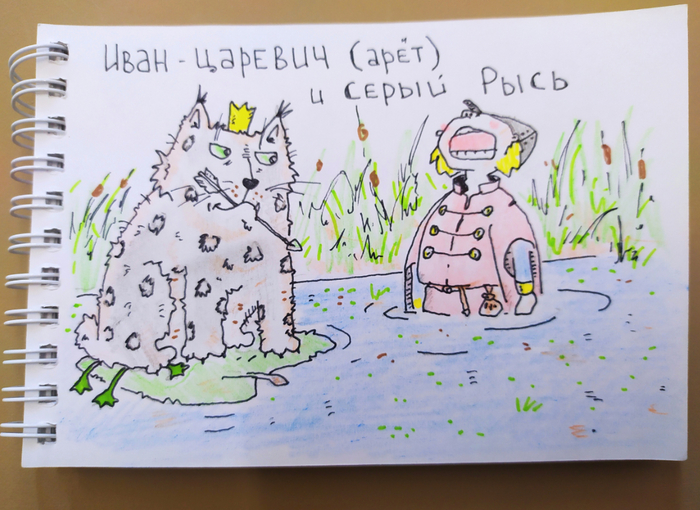 Иван-царевич (арёт)
и серый Рысь